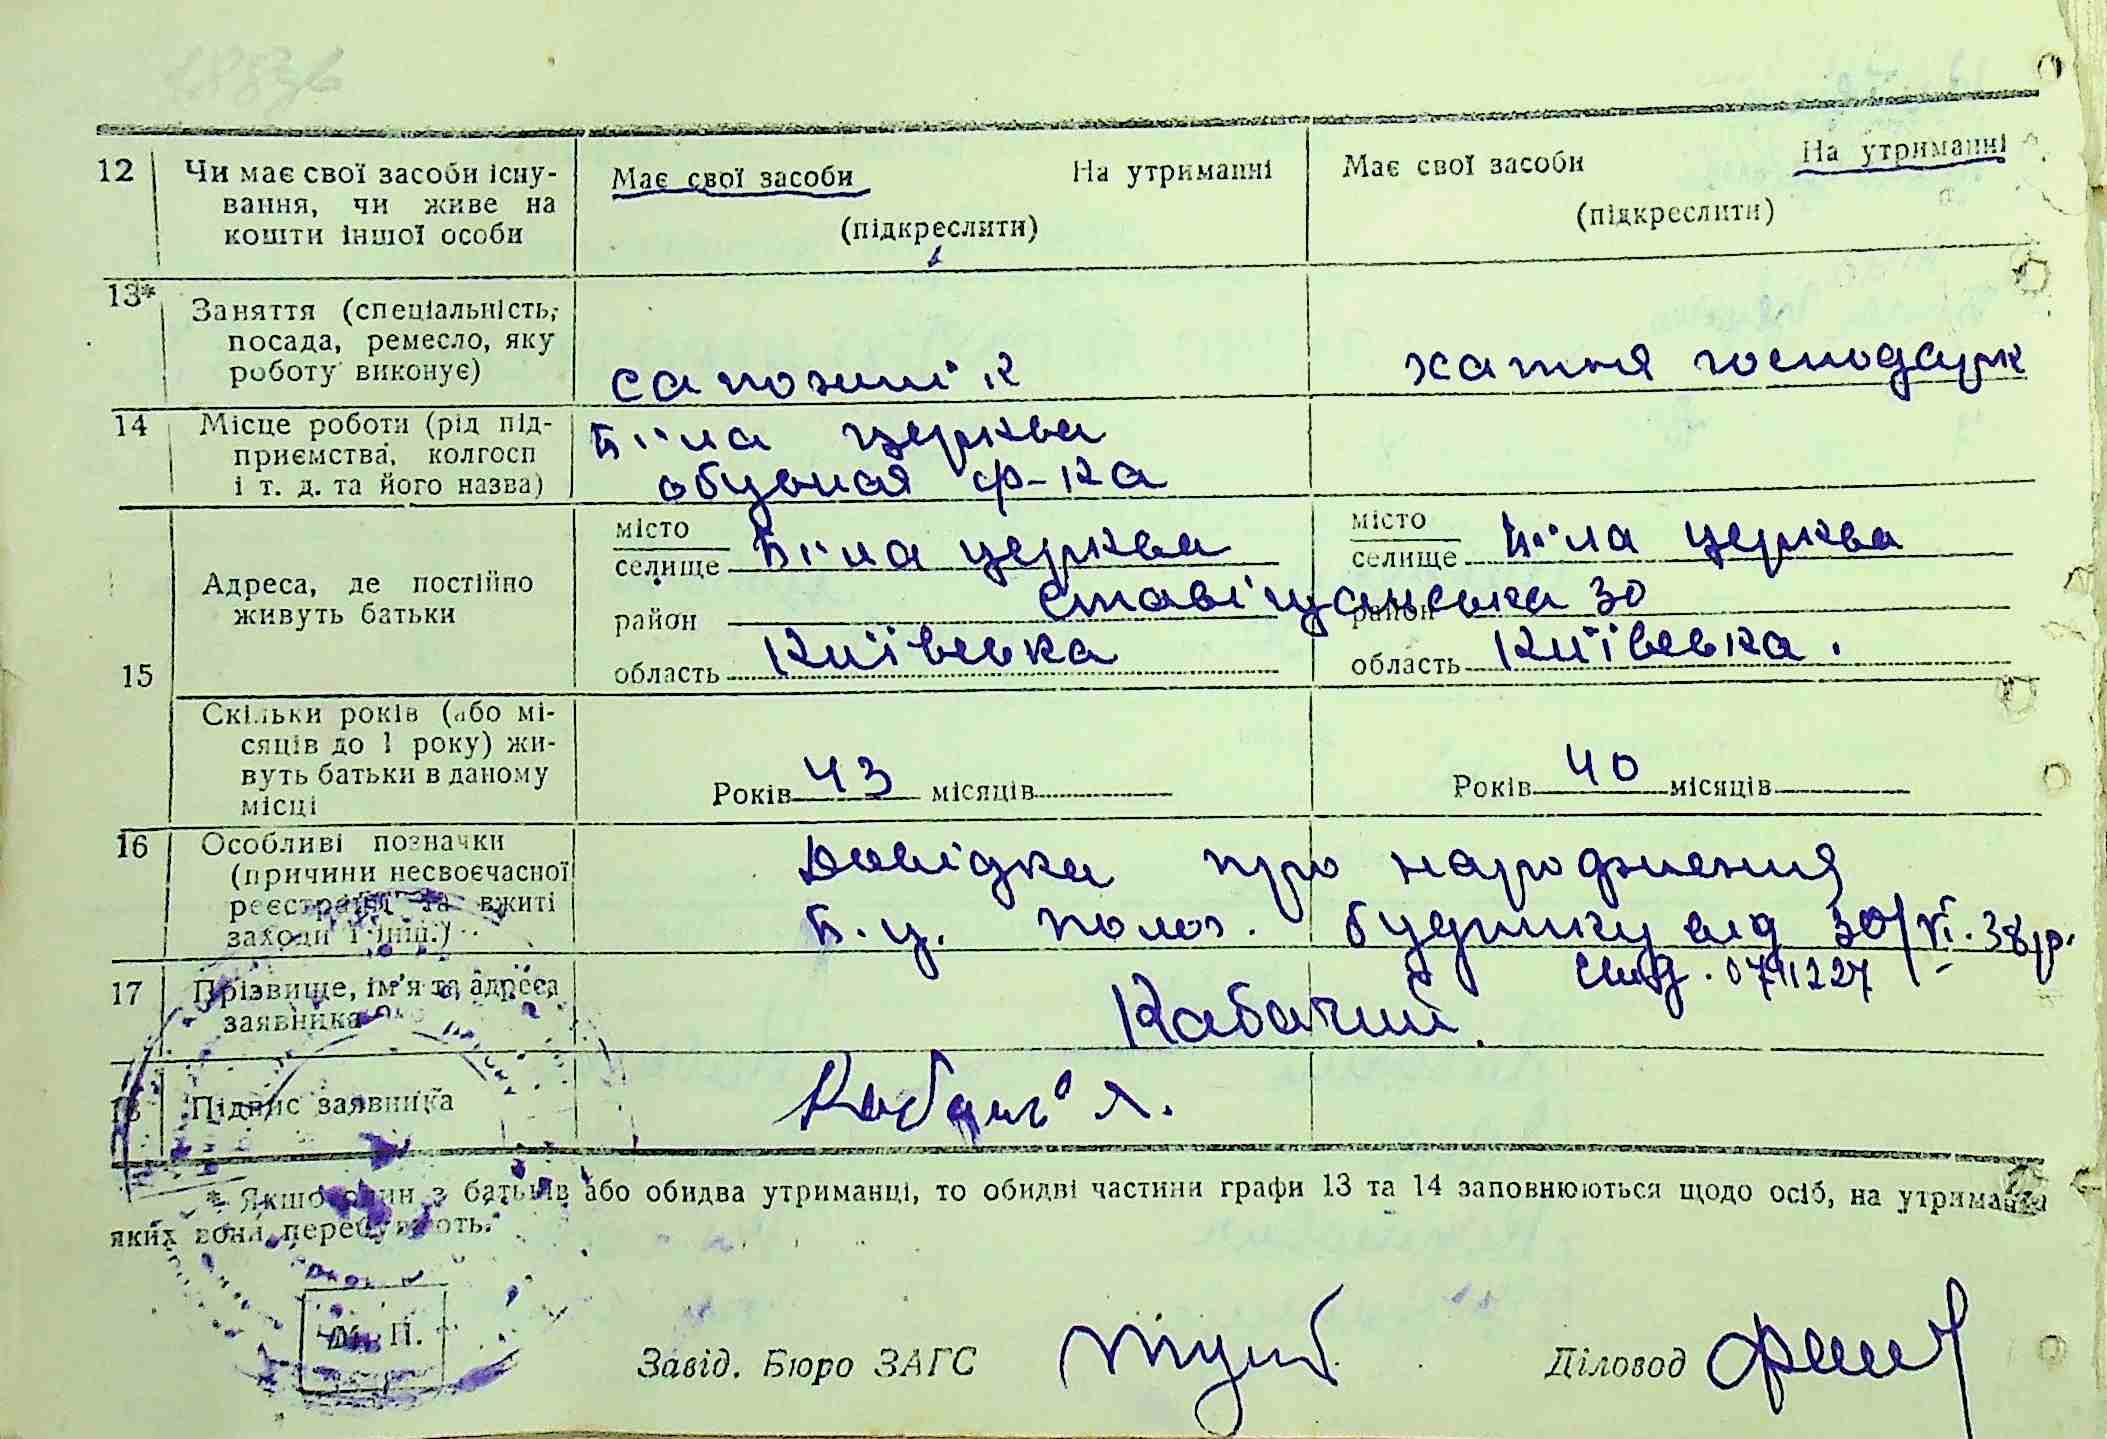 12 Чи має свої засоби існу-
вання, чи живе на
кошти іншої особи
Має свої засоби На утриманні
(підкреслити)
Має свої засоби На утриманні
(підкреслити)
13* Заняття (спеціальність,
посада, ремесло, яку
роботу виконує)
сапожнік
хатня господарк
14 Місце роботи (рід під-
приємства, колгосп
і т. д. та його назва)
Біла церква
обувная ф-ка
15
Адреса, де постійно
живуть батьки
місто
селище Біла церква
район
область Київська
місто
селище Біла церква
Ставіщанська 30
район
область Київська.
Скільки років (або мі-
сяців до 1 року) жи-
вуть батьки в даному
місці
Років 43 місяців
Років 40 місяців
16 Особливі позначки
(причини несвоєчасної
реєстрації та вжиті
заходи і інш.)
Довідка про народження
Б.ц. полог. будинку від 30/VI.38р.
17 Прізвище, ім'я та адреса
заявника
0711227
Кабачий.
18 Підпис заявника
* Якщо один з батьків або обидва утриманці, то обидві частини графи 13 та 14 заповнюються щодо осіб, на утриманні
яких вони перебувають.
М. П.
Завід. Бюро ЗАГС
Діловод